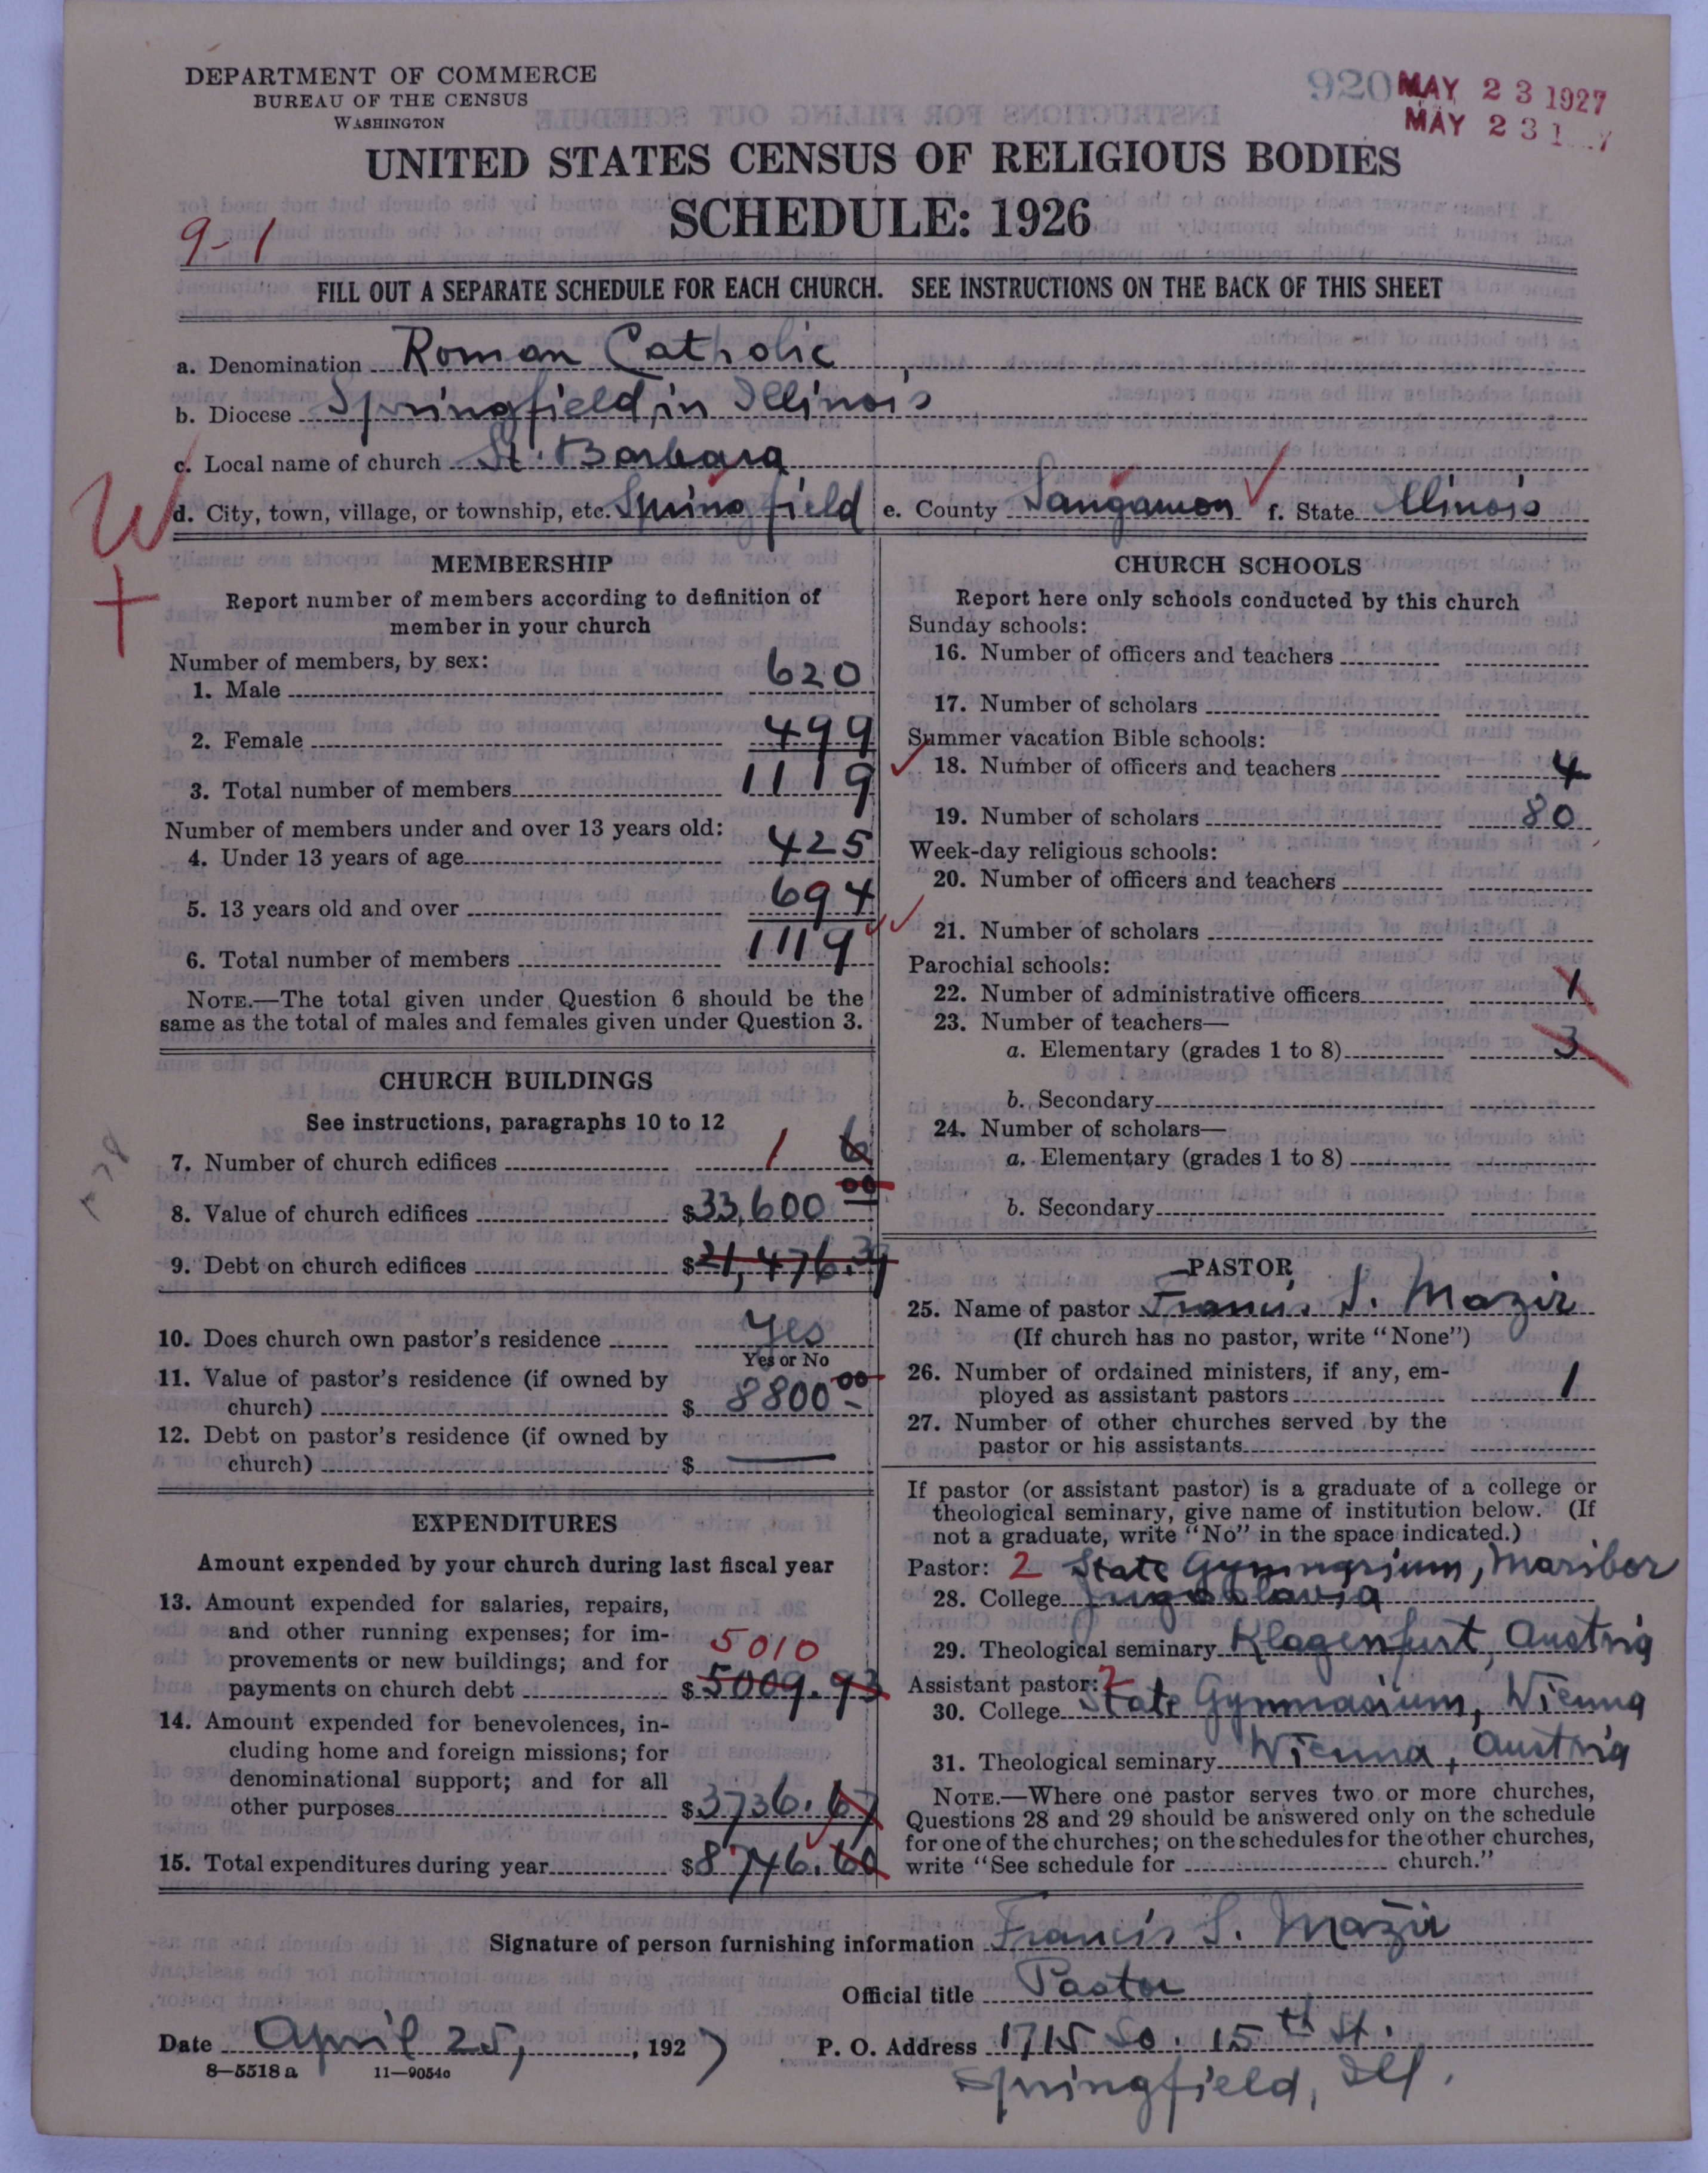 DEPARTMENT OF COMMERCE
BUREAU OF THE CENSUS
WASHINGTON
920
MAY 23 1927
MAY 23 1 7
UNITED STATES CENSUS OF RELIGIOUS BODIES
SCHEDULE: 1926
9-1
FILL OUT A SEPARATE SCHEDULE FOR EACH CHURCH. SEE INSTRUCTIONS ON THE BACK OF THIS SHEET
a. Denomination Roman Catholic
b. Diocese Springfield in Illinois
c. Local name of church St. Barbara
W
d. City, town, village, or township, etc. Springfield e. County Sangamon f. State Illinois
MEMBERSHIP
Report number of members according to definition of
member in your church
Number of members, by sex:
1. Male 620
2. Female 499
3. Total number of members 1119
Number of members under and over 13 years old:
4. Under 13 years of age 425
5. 13 years old and over 694
6. Total number of members 1119
NOTE.—The total given under Question 6 should be the
same as the total of males and females given under Question 3.
CHURCH BUILDINGS
See instructions, paragraphs 10 to 12
7. Number of church edifices 1 6
8. Value of church edifices $33,600 00
9. Debt on church edifices $21,476.37
10. Does church own pastor's residence Yes
Yes or No
11. Value of pastor's residence (if owned by
church) $ 8800.00
12. Debt on pastor's residence (if owned by
church) $ —
EXPENDITURES
Amount expended by your church during last fiscal year
13. Amount expended for salaries, repairs,
and other running expenses; for im-
provements or new buildings; and for
5010
payments on church debt $ 5009.93
14. Amount expended for benevolences, in-
cluding home and foreign missions; for
denominational support; and for all
other purposes $3736.67
15. Total expenditures during year $8746.60
CHURCH SCHOOLS
Report here only schools conducted by this church
Sunday schools:
16. Number of officers and teachers
17. Number of scholars
Summer vacation Bible schools:
18. Number of officers and teachers 4
19. Number of scholars 80
Week-day religious schools:
20. Number of officers and teachers
21. Number of scholars
Parochial schools:
22. Number of administrative officers 1
23. Number of teachers—
a. Elementary (grades 1 to 8) 3
b. Secondary
24. Number of scholars—
a. Elementary (grades 1 to 8)
b. Secondary
PASTOR
25. Name of pastor Francis S. Mazir
(If church has no pastor, write "None")
26. Number of ordained ministers, if any, em-
ployed as assistant pastors 1
27. Number of other churches served by the
pastor or his assistants
If pastor (or assistant pastor) is a graduate of a college or
theological seminary, give name of institution below. (If
not a graduate, write "No" in the space indicated.)
Pastor: 2 State Gymnasium, Maribor
28. College Jugoslavia
29. Theological seminary Klagenfurt, Austria
Assistant pastor: 2
30. College State Gymnasium, Vienna
31. Theological seminary Vienna, Austria
NOTE.—Where one pastor serves two or more churches,
Questions 28 and 29 should be answered only on the schedule
for one of the churches; on the schedules for the other churches,
write "See schedule for church."
Signature of person furnishing information Francis S. Mazir
Official title Pastor
Date April 25, , 1927 P. O. Address 1715 So. 15th St.
8—5518 a 11—9054c
Springfield, Ill.